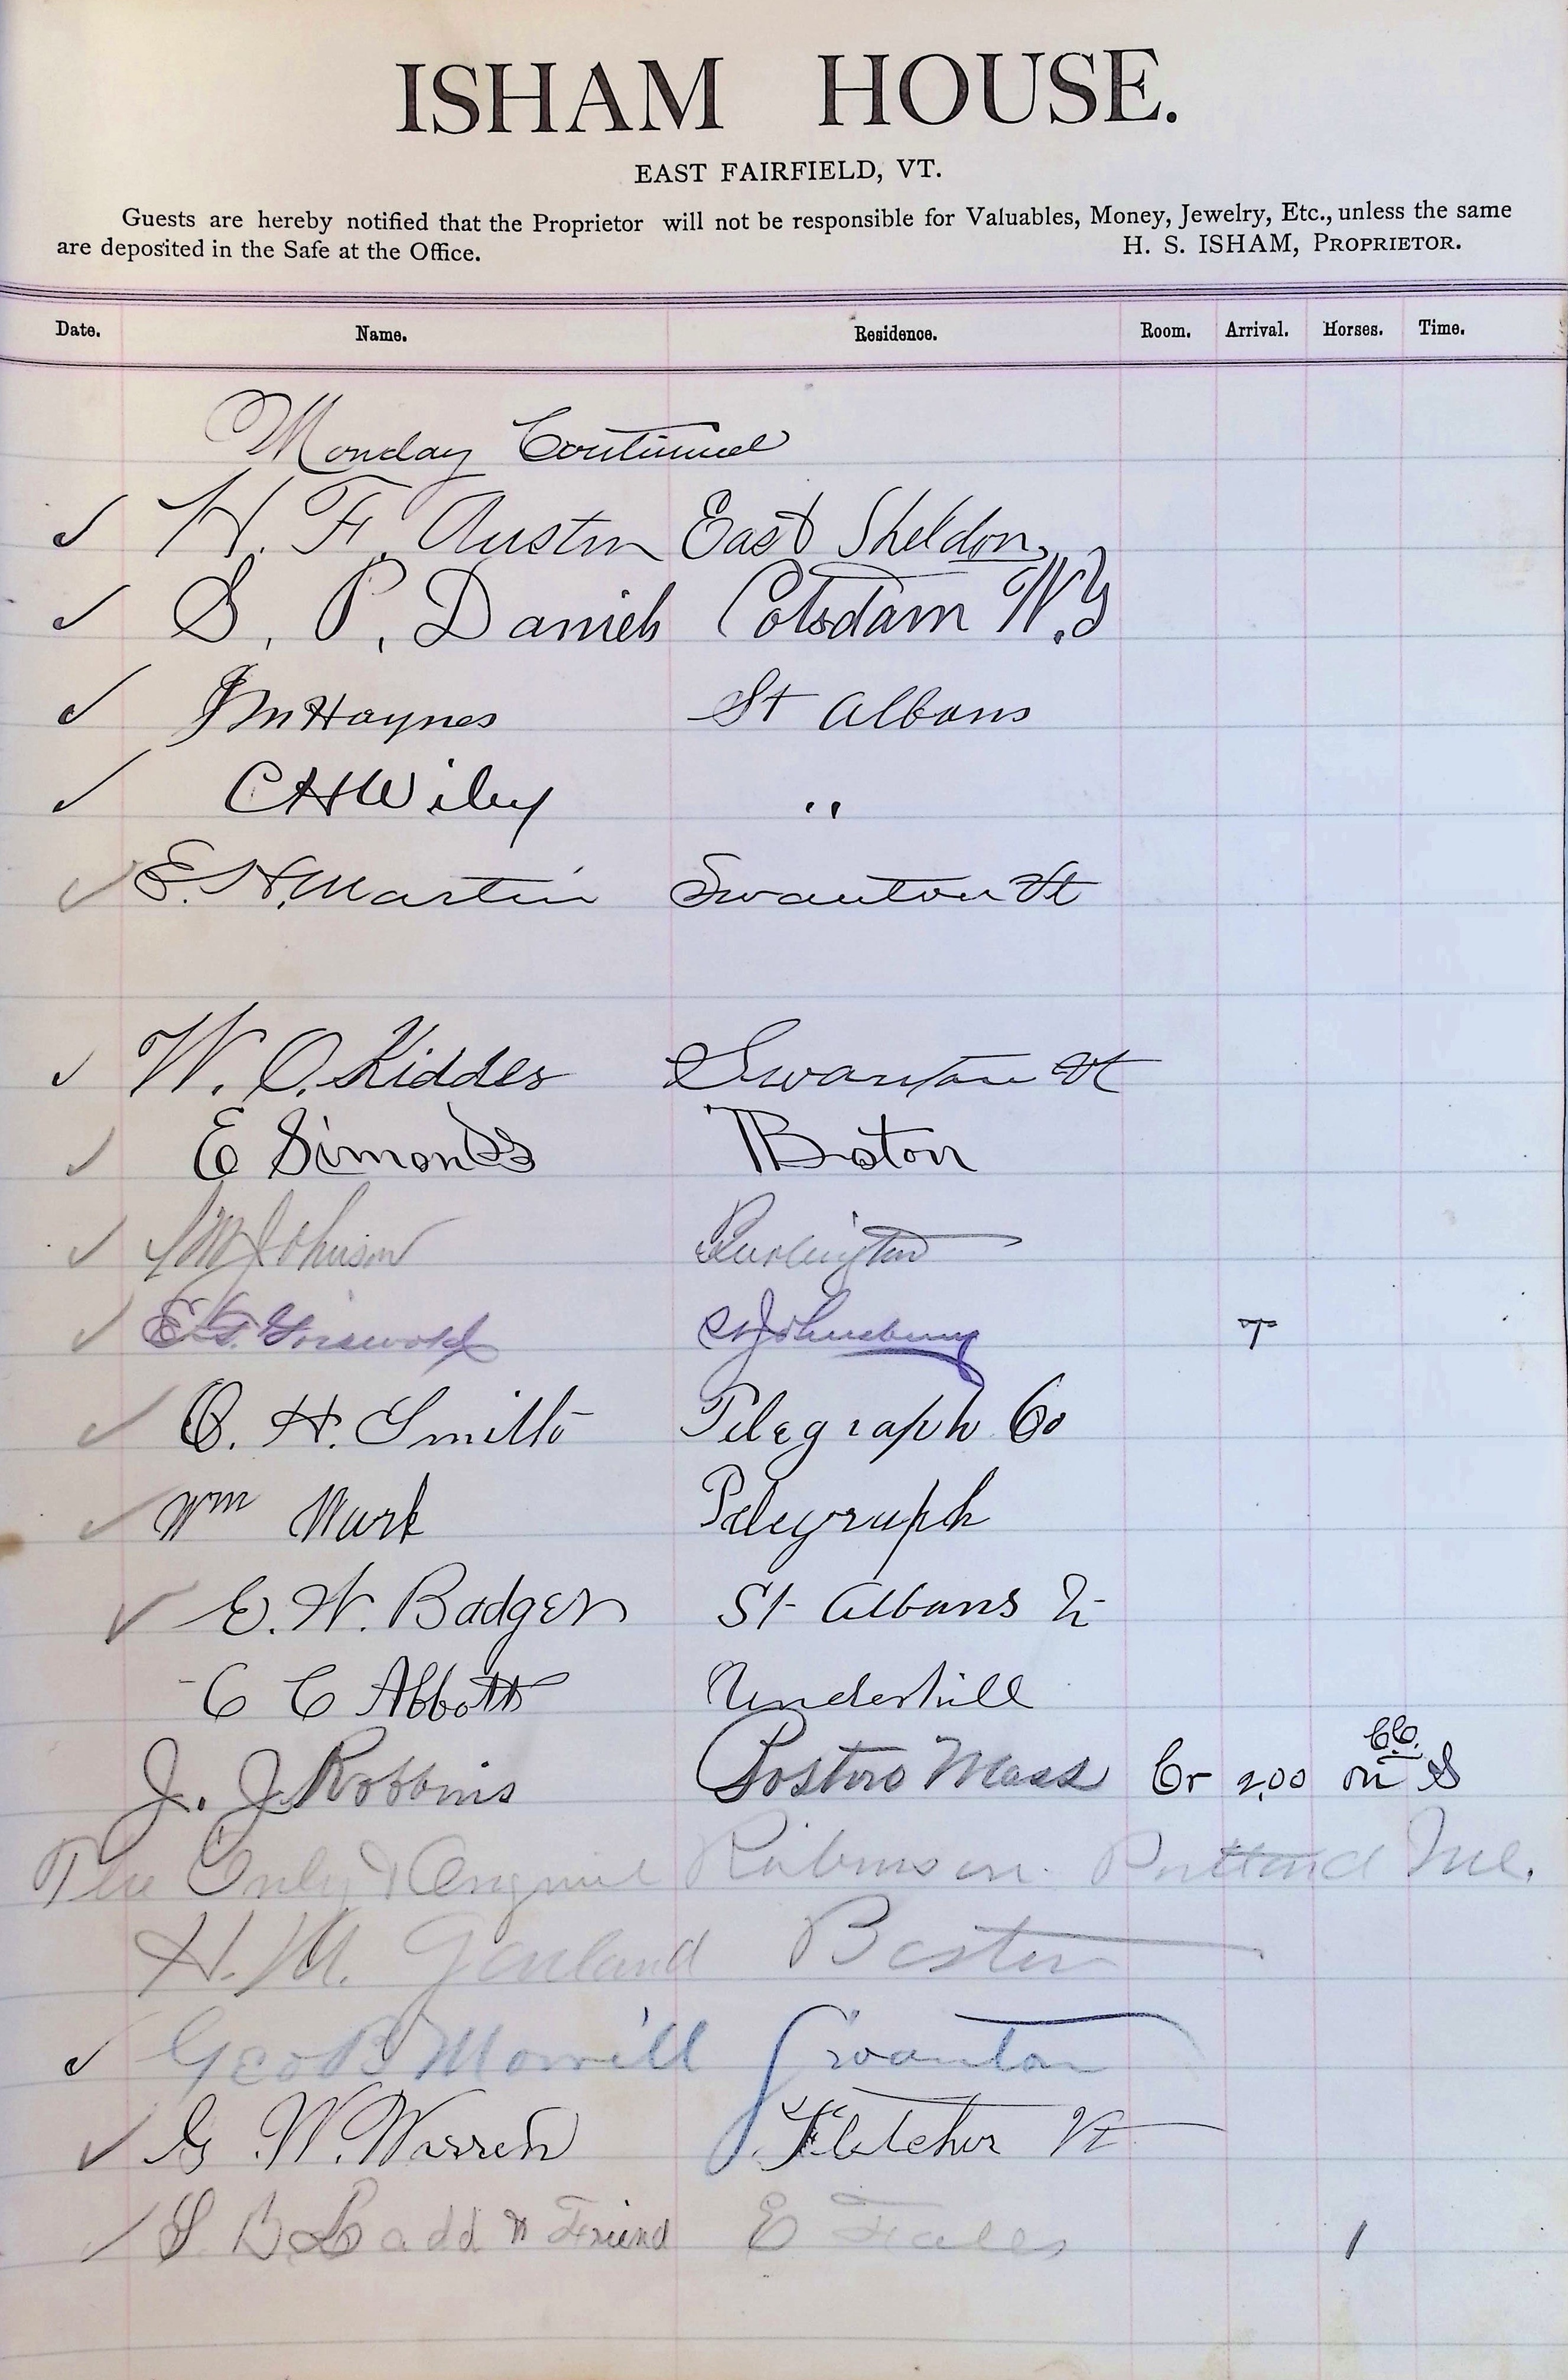 ISHAM HOUSE.
EAST FAIRFIELD, VT.
Guests are hereby notified that the Proprietor will not be responsible for Valuables, Money, Jewelry, Etc., unless the same
are deposited in the Safe at the Office. H. S. ISHAM, PROPRIETOR.
Date. Name. Residence. Room. Arrival. Horses. Time.
Monday Continued
✓ H. F. Austin East Sheldon
✓ S. P. Daniels Potsdam N.Y
✓ J M Haynes St Albans
✓ C H Wiley "
✓ E. H. Martin Swanton Vt
✓ W. O. Kidder Swanton Vt
✓ E Simonds Boston
✓ Johnson Burlington
✓ E. G. Griswold St Johnsbury T
✓ O. H. Smith Telegraph Co
✓ Wm Telegraph
✓ E. W. Badger St Albans Vt
C C Abbott Underhill
J. J. Robbins Boston Mass Cr 2,00 on S
CC.
The Only & Original Robinson. Portland Me.
H. M. Garland Boston
✓ Geo B Morrill Swanton
✓ G. W. Warren Fletcher Vt
✓ S. B Ladd & Friend E 1